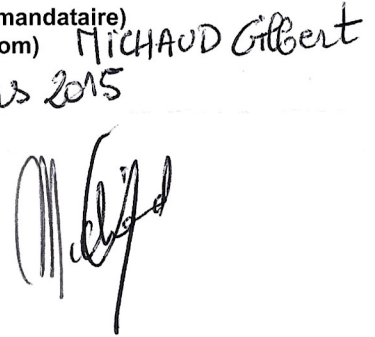 mandataire)
om) MICHAUD Gilbert
rs 2015